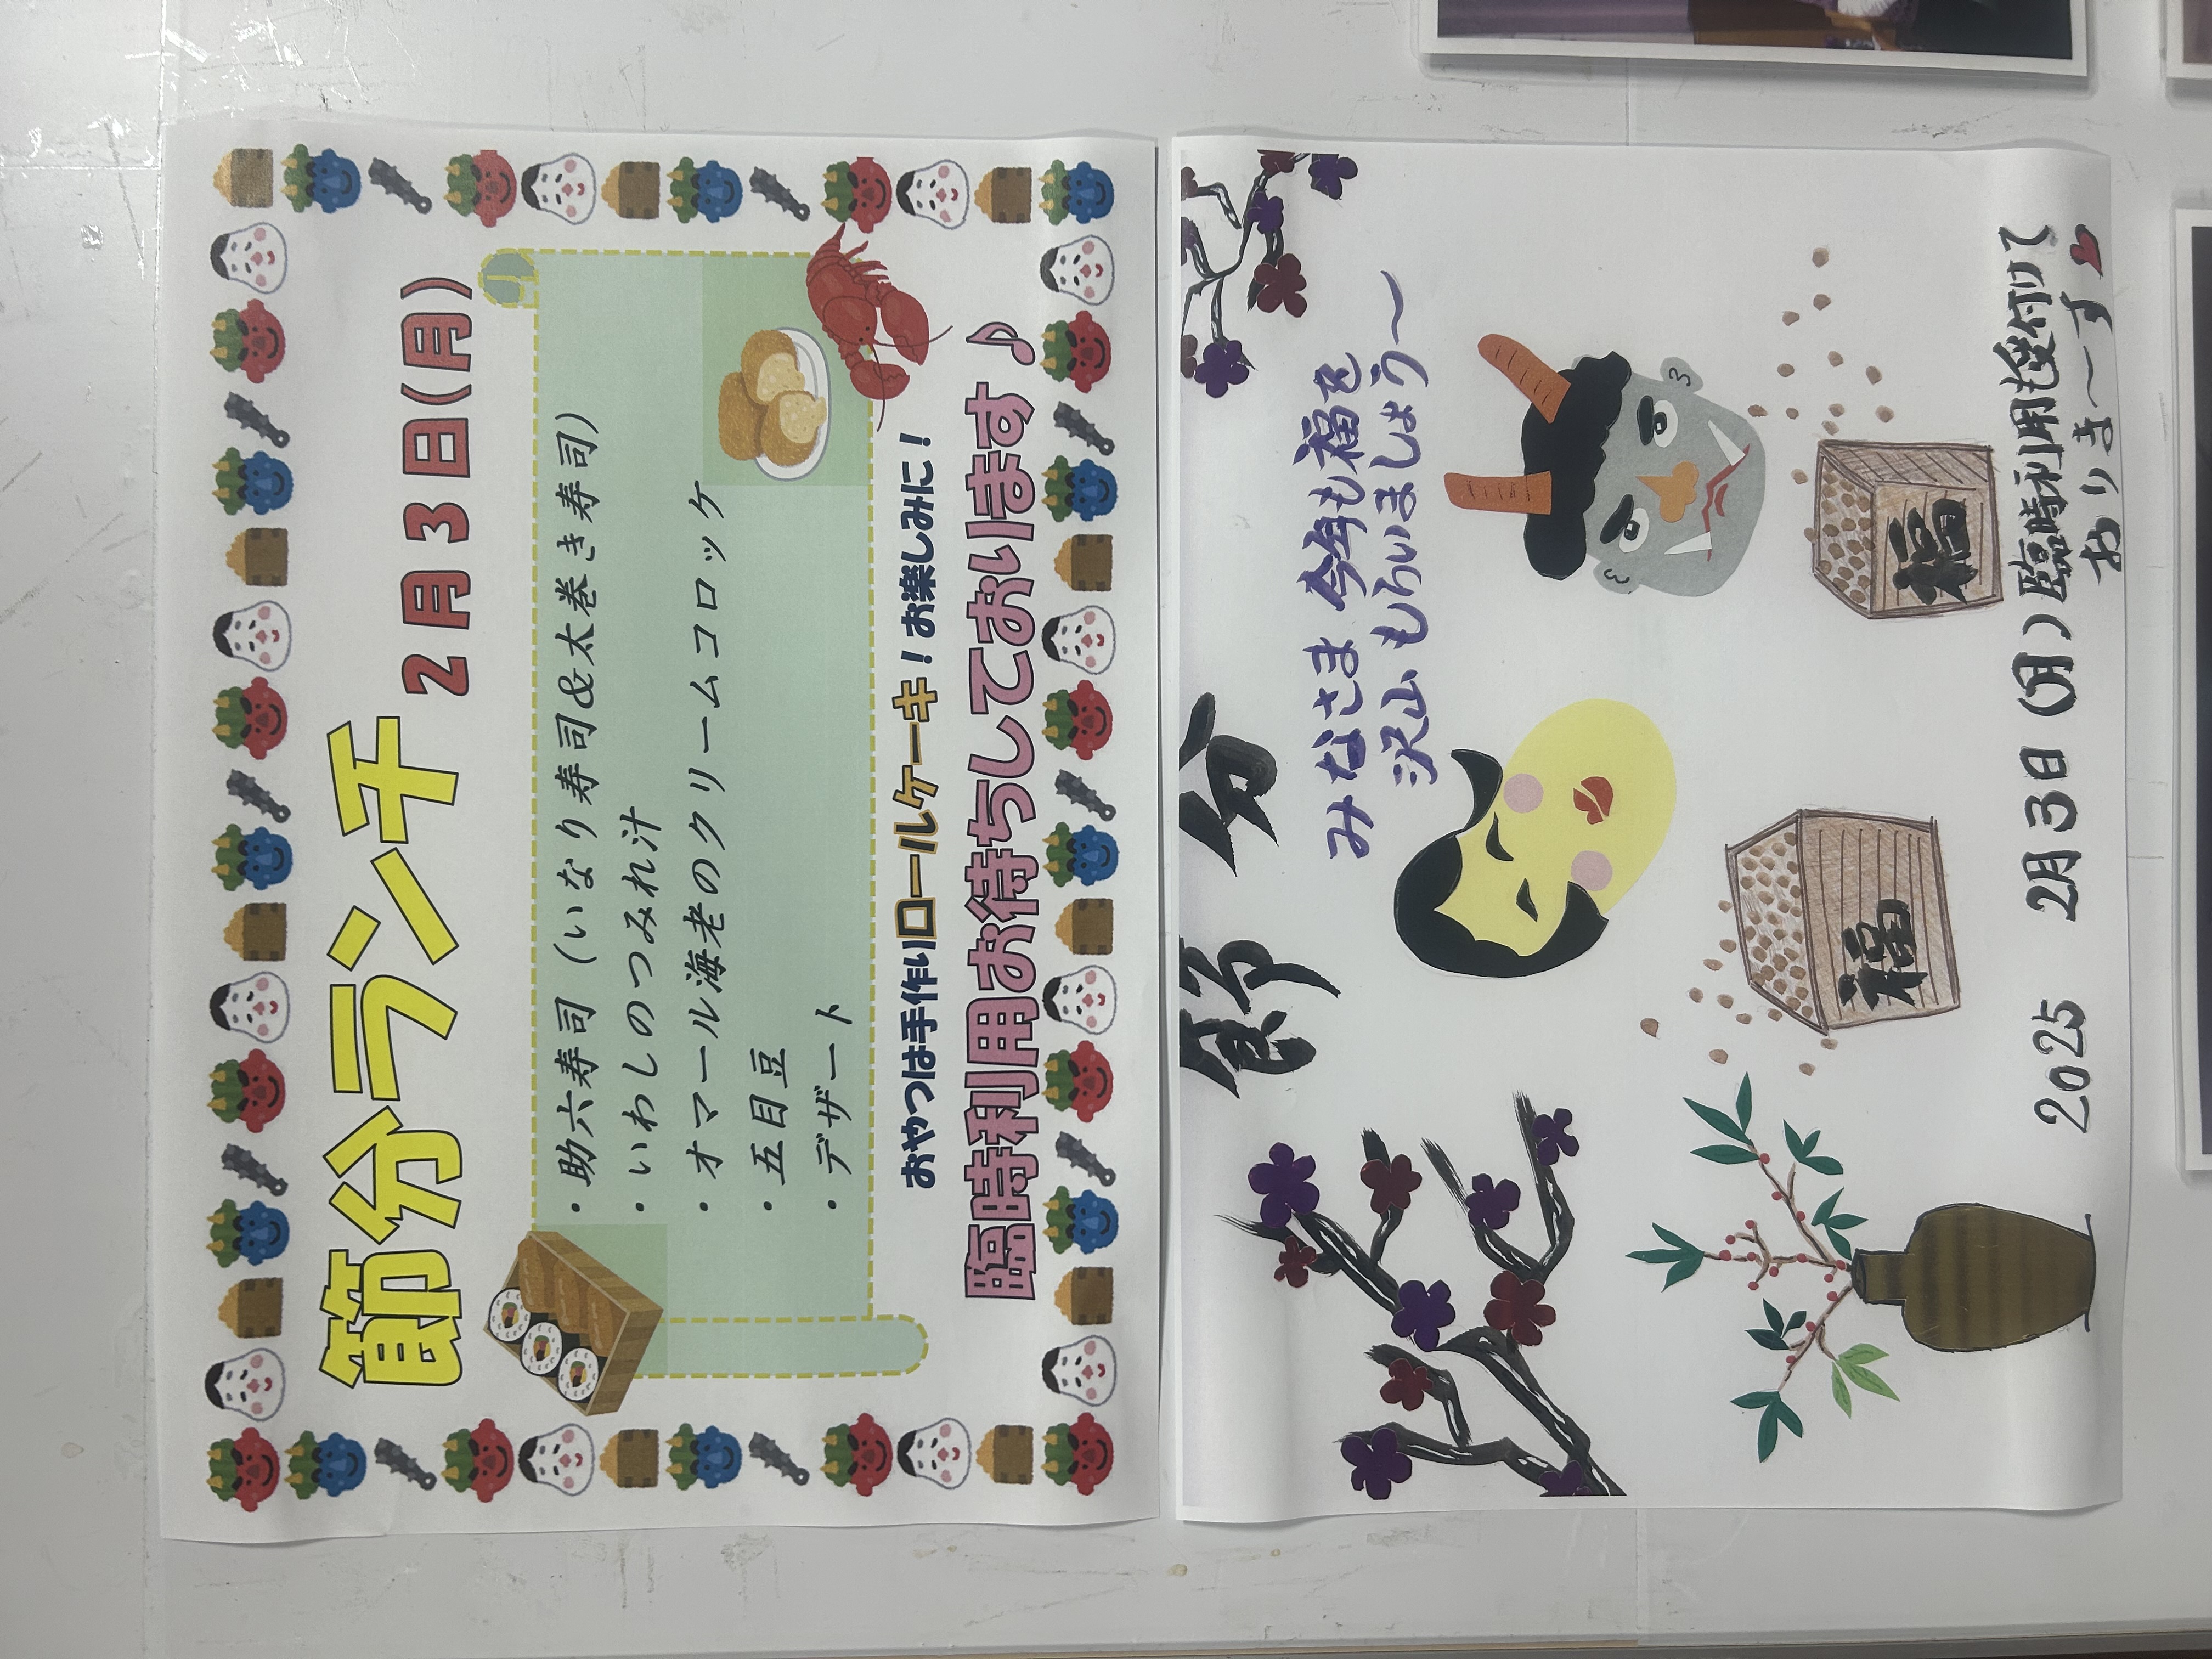 節分ランチ 2月3日(月)
・助六寿司（いなり寿司&太巻き寿司）
・いわしのつみれ汁
・オマール海老のクリームコロッケ
・五目豆
・デザート
おやつは手作りロールケーキ！お楽しみに！
臨時利用お待ちしております♪
節分
みなさま 今年も福を
沢山もらいましょう〜
福
福
2025 2月3日(月)臨時利用も受付けて
おりま〜す